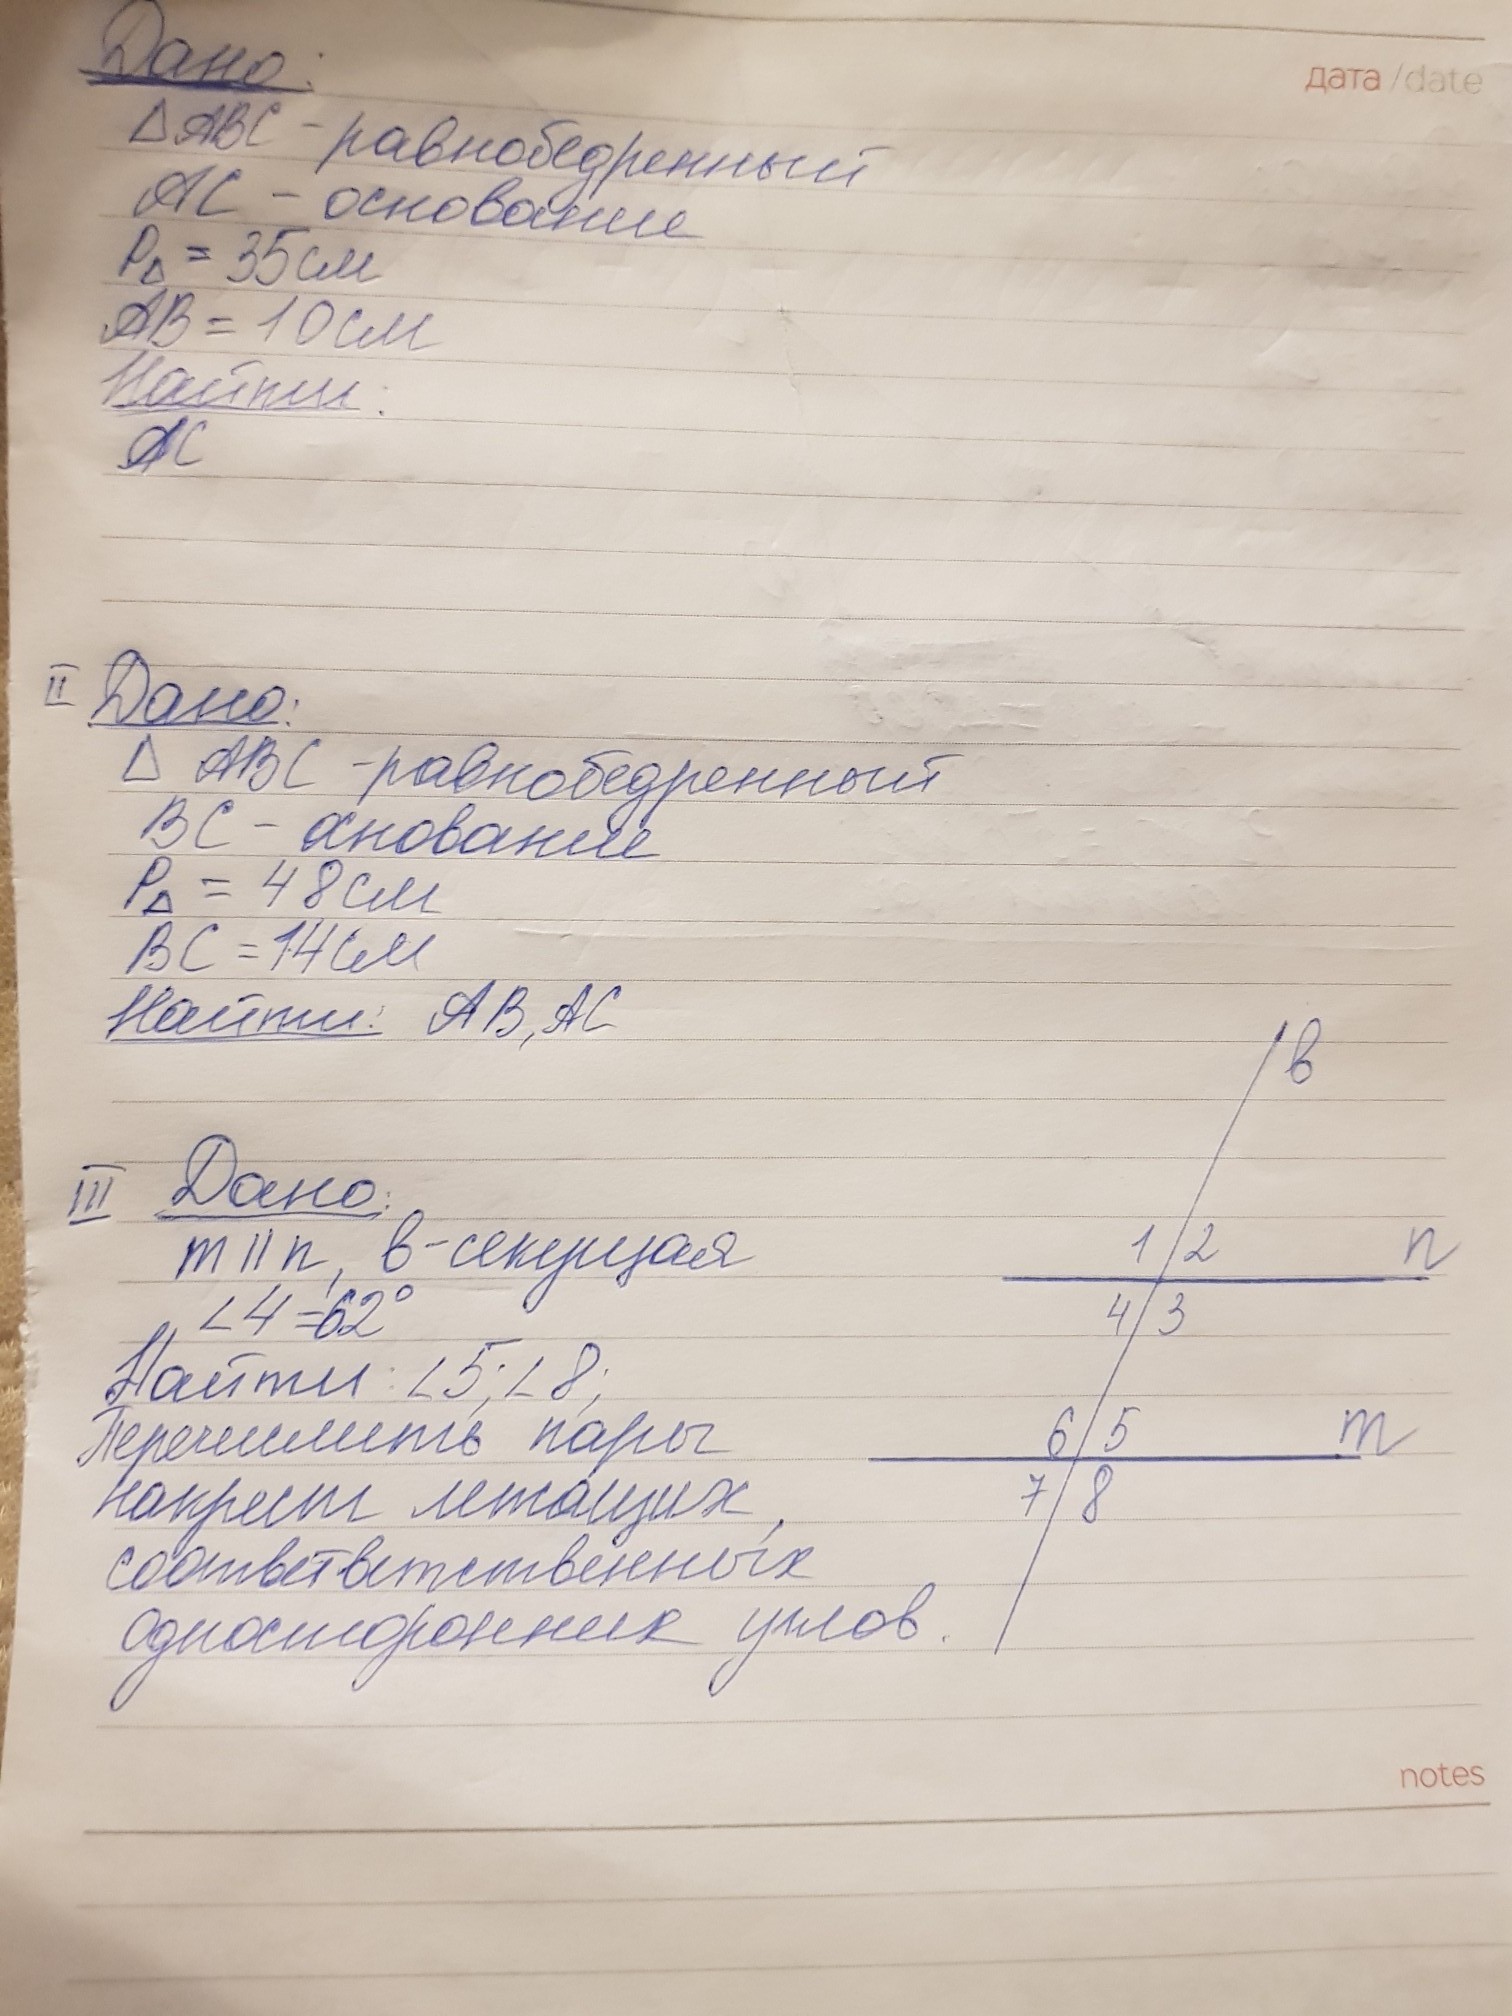 дата/date
Дано:
△ABC - равнобедренный
AC - основание
P△ = 35см
AB = 10см
Найти:
AC
II Дано:
△ ABC - равнобедренный
BC - основание
P△ = 48см
BC = 14см
Найти: AB, AC
в
III Дано:
m || n, в - секущая
1 2 n
∠4 = 62°
4 3
Найти: ∠5; ∠8;
Перечислить пары
6 5 m
накрест лежащих,
7 8
соответветственных
односторонних углов.
notes